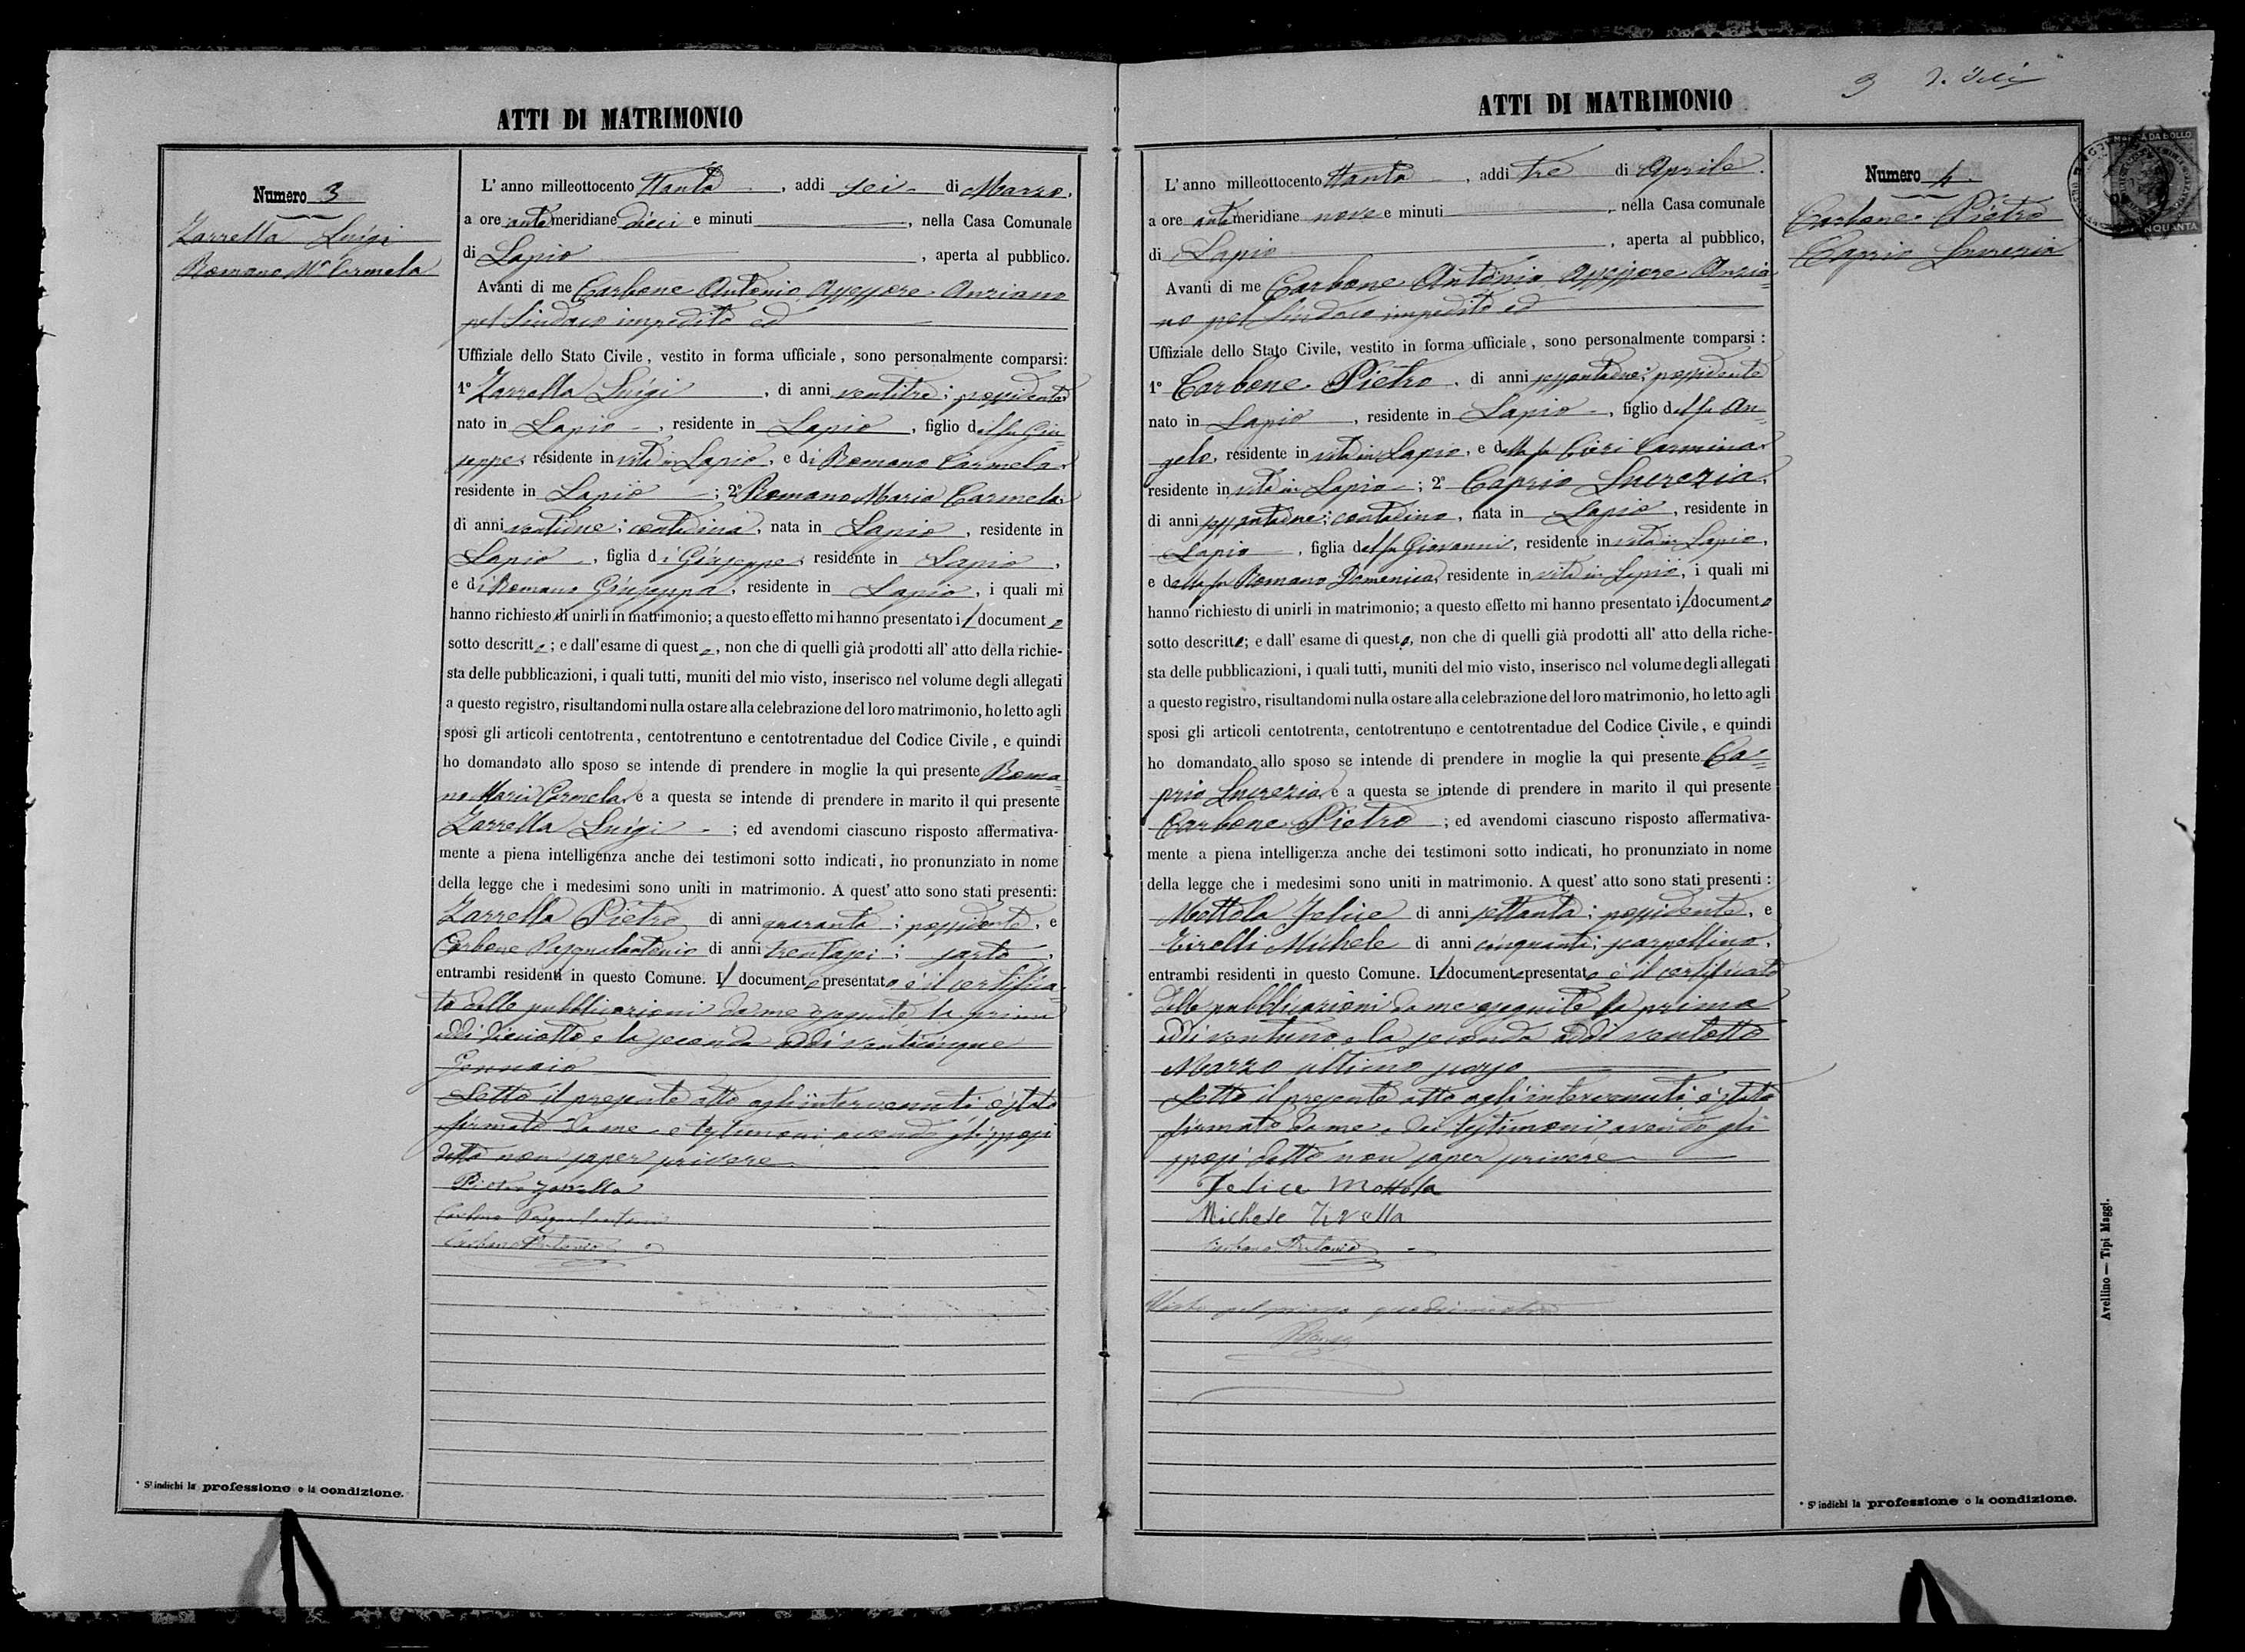 ATTI DI MATRIMONIO
Numero 3
Zarrella Luigi
Romano Mª Carmela
L' anno milleottocento ttanta, addì sei di Marzo,
a ore antimeridiane dieci e minuti, nella Casa Comunale
di Lapio, aperta al pubblico.
Avanti di me Carbone Antonio Assessore Anziano
pel Sindaco impedito ed
Uffiziale dello Stato Civile, vestito in forma ufficiale, sono personalmente comparsi:
1° Zarrella Luigi, di anni ventitre; possidente
nato in Lapio, residente in Lapio, figlio del fu Giu=
seppe, residente in vita in Lapio, e di Romano Carmela,
residente in Lapio; 2° Romano Maria Carmela,
di anni ventidue; contadina, nata in Lapio, residente in
Lapio, figlia di Giuseppe, residente in Lapio,
e di Romano Giuseppa, residente in Lapio, i quali mi
hanno richiesto di unirli in matrimonio; a questo effetto mi hanno presentato il documento
sotto descritto; e dall' esame di questo, non che di quelli già prodotti all' atto della richie-
sta delle pubblicazioni, i quali tutti, muniti del mio visto, inserisco nel volume degli allegati
a questo registro, risultandomi nulla ostare alla celebrazione del loro matrimonio, ho letto agli
sposi gli articoli centotrenta, centotrentuno e centotrentadue del Codice Civile, e quindi
ho domandato allo sposo se intende di prendere in moglie la qui presente Roma=
no Maria Carmela, e a questa se intende di prendere in marito il qui presente
Zarrella Luigi; ed avendomi ciascuno risposto affermativa-
mente a piena intelligenza anche dei testimoni sotto indicati, ho pronunziato in nome
della legge che i medesimi sono uniti in matrimonio. A quest' atto sono stati presenti:
Zarrella Pietro di anni quaranta; possidente, e
Carbone Pasqualantonio di anni trentasei; sarto,
entrambi residenti in questo Comune. Il documento presentato è il certifica=
to delle pubblicazioni da me eseguite la prima
addì diciotto e la seconda addì venticinque
Gennaio
Letto il presente atto agli intervenuti è stato
firmato da me e testimoni avendo gli sposi
detto non saper scrivere
Pietro Zarrella
Carbone Pasqualantonio
Carbone Antonio
* S' indichi la professione o la condizione.
ATTI DI MATRIMONIO
3
Numero 4
Carbone Pietro
Caprio Lucrezia
MARCA DA BOLLO
L' anno milleottocento ttanta, addì tre di Aprile.
a ore antimeridiane nove e minuti, nella Casa comunale
di Lapio, aperta al pubblico,
Avanti di me Carbone Antonio Assessore Anzia=
no pel Sindaco impedito ed
Uffiziale dello Stato Civile, vestito in forma ufficiale, sono personalmente comparsi:
1° Carbone Pietro, di anni sessantadue; possidente
nato in Lapio, residente in Lapio, figlio del fu An=
gelo, residente in vita in Lapio, e della fu Cieri Carmina,
residente in vita in Lapio; 2° Caprio Lucrezia,
di anni sessantadue; contadina, nata in Lapio, residente in
Lapio, figlia del fu Giovanni, residente in vita in Lapio,
e della fu Romano Domenica, residente in vita in Lapio, i quali mi
hanno richiesto di unirli in matrimonio; a questo effetto mi hanno presentato il documento
sotto descritto; e dall' esame di questo, non che di quelli già prodotti all' atto della riche-
sta delle pubblicazioni, i quali tutti, muniti del mio visto, inserisco nel volume degli allegati
a questo registro, risultandomi nulla ostare alla celebrazione del loro matrimonio, ho letto agli
sposi gli articoli centotrenta, centotrentuno e centotrentadue del Codice Civile, e quindi
ho domandato allo sposo se intende di prendere in moglie la qui presente Ca=
prio Lucrezia, e a questa se intende di prendere in marito il qui presente
Carbone Pietro; ed avendomi ciascuno risposto affermativa-
mente a piena intelligenza anche dei testimoni sotto indicati, ho pronunziato in nome
della legge che i medesimi sono uniti in matrimonio. A quest' atto sono stati presenti:
Mottola Felice di anni settanta; possidente, e
Tirelli Michele di anni cinquanta; scarpellino,
entrambi residenti in questo Comune. Il documento presentato è il certificato
delle pubblicazioni da me eseguite la prima
addì ventuno e la seconda addì ventotto
Marzo ultimo scorso
Letto il presente atto agli intervenuti è stato
firmato da me e dei testimoni avendo gli
sposi detto non saper scrivere
Felice Mottola
Michele Tirella
Carbone Antonio
Visto pel primo quadrimestre
Avellino — Tipi Maggi.
* S' indichi la professione o la condizione.